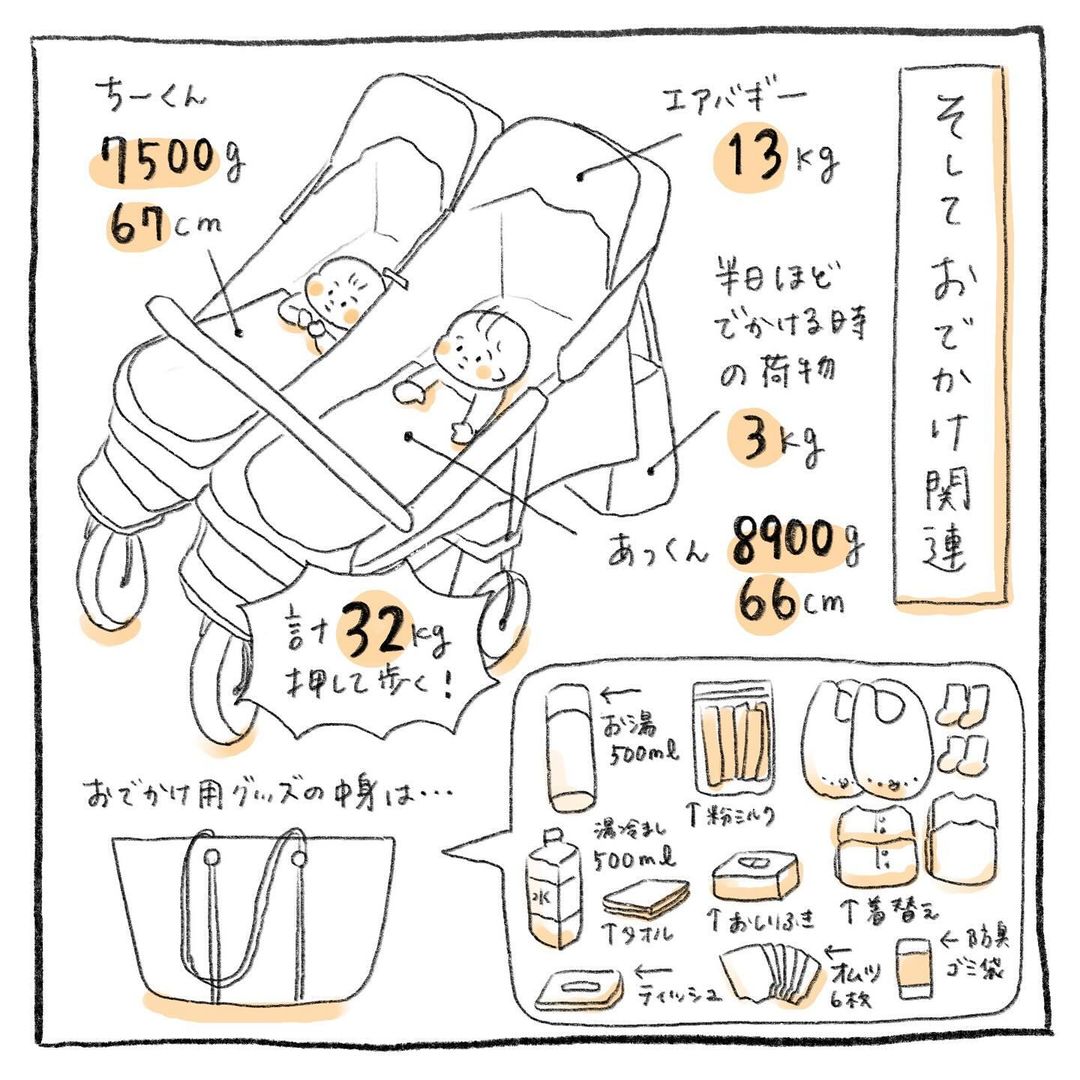 そして おでかけ関連
エアバギー
13kg
半日ほど
でかける時
の荷物
3kg
ちーくん
7500g
67cm
あっくん 8900g
66cm
計32kg
押して歩く!
おでかけ用グッズの中身は…
←
お湯
500ml
↑粉ミルク
湯冷まし
500ml
水
↑タオル
↑おしりふき
↑着替え
←
ティッシュ
←
オムツ
6枚
←防臭
ゴミ袋